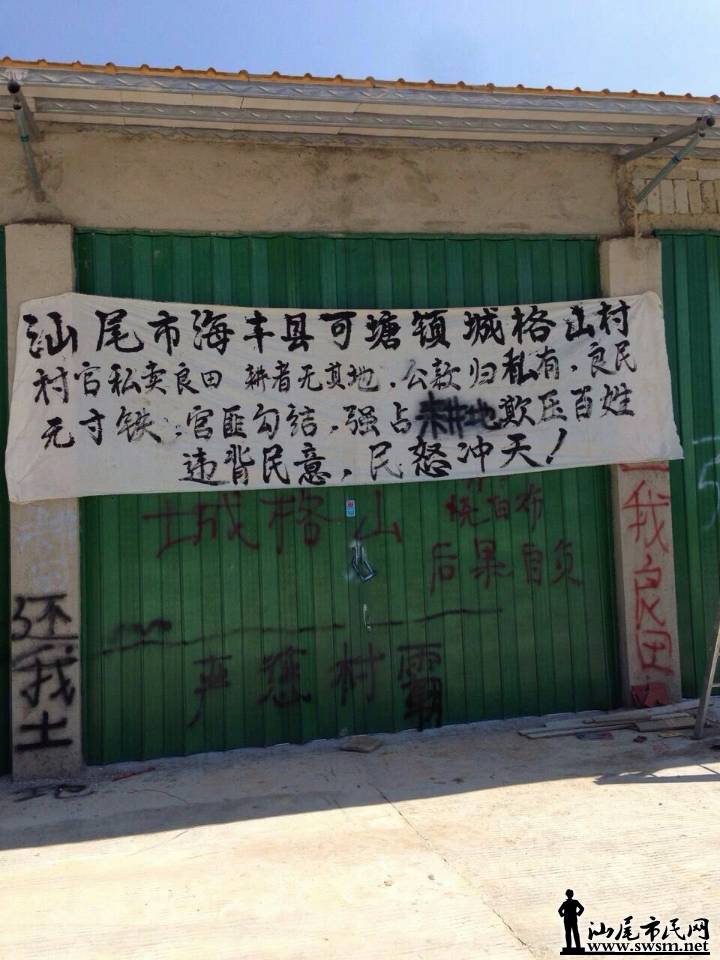 汕尾市海丰县可塘镇城格山村
村官私卖良田 耕者无其地,公款归私有,良民
无寸铁,官匪勾结,强占耕地欺压百姓
违背民意,民怒冲天!
城格山
烧百布
后果自负
严惩村霸
还我土
还我良田
汕尾市民网
www.swsm.net